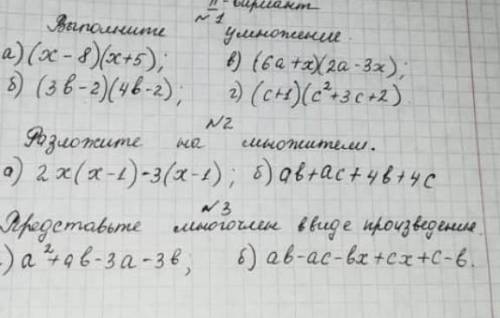 II-вариант
№1
Выполните умножение.
а) (x-8)(x+5); в) (6a+x)(2a-3x);
б) (3b-2)(4b-2); г) (c+1)(c²+3c+2)
№2
Разложите на множители.
а) 2x(x-1)-3(x-1); б) ab+ac+4b+4c
№3
Представьте многочлен в виде произведение.
) a²+ab-3a-3b; б) ab-ac-bx+cx+c-b.